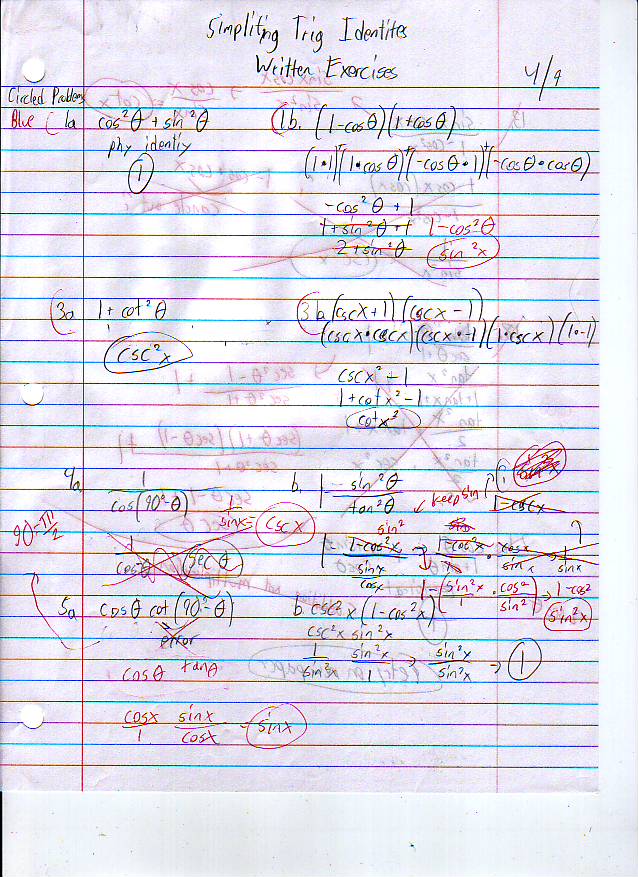 Simplifing Trig Identites
Written Exercises
4/9
Circled Problems
Blue
1a cos²θ + sin²θ
phy identiy
1
1b. (1-cosθ)(1+cosθ)
(1•1)+(1•cosθ)+(-cosθ•1)+(-cosθ•cosθ)
-cos²θ + 1
1+sin²θ+1 1-cos²θ
2+sin²θ sin²x
3a 1 + cot²θ
csc²x
3b (cscx+1)(cscx-1)
(cscx•cscx)(cscx•-1)(1•cscx)(1•-1)
cscx² - 1
1+cotx²-1
cotx²
4a 1/cos(90°-θ)
1/sinx = cscx
1/cosθ secθ
90=π/2
b. 1 - sin²θ/tan²θ
keep sin
1-cscx
sin²
1- 1-cos²x/(sinx/cosx) → 1-cos²x • cosx/sinx → 1/sinx
1-(sin²x/1 • cos²/sin²) ⇒ 1-cos²
sin²x
5a cosθ cot(90°-θ)
error
cosθ tanθ
cosx/1 sinx/cosx = sinx
b. csc²x(1-cos²x)
csc²x sin²x
1/sin²x sin²x/1 → sin²x/sin²x → 1